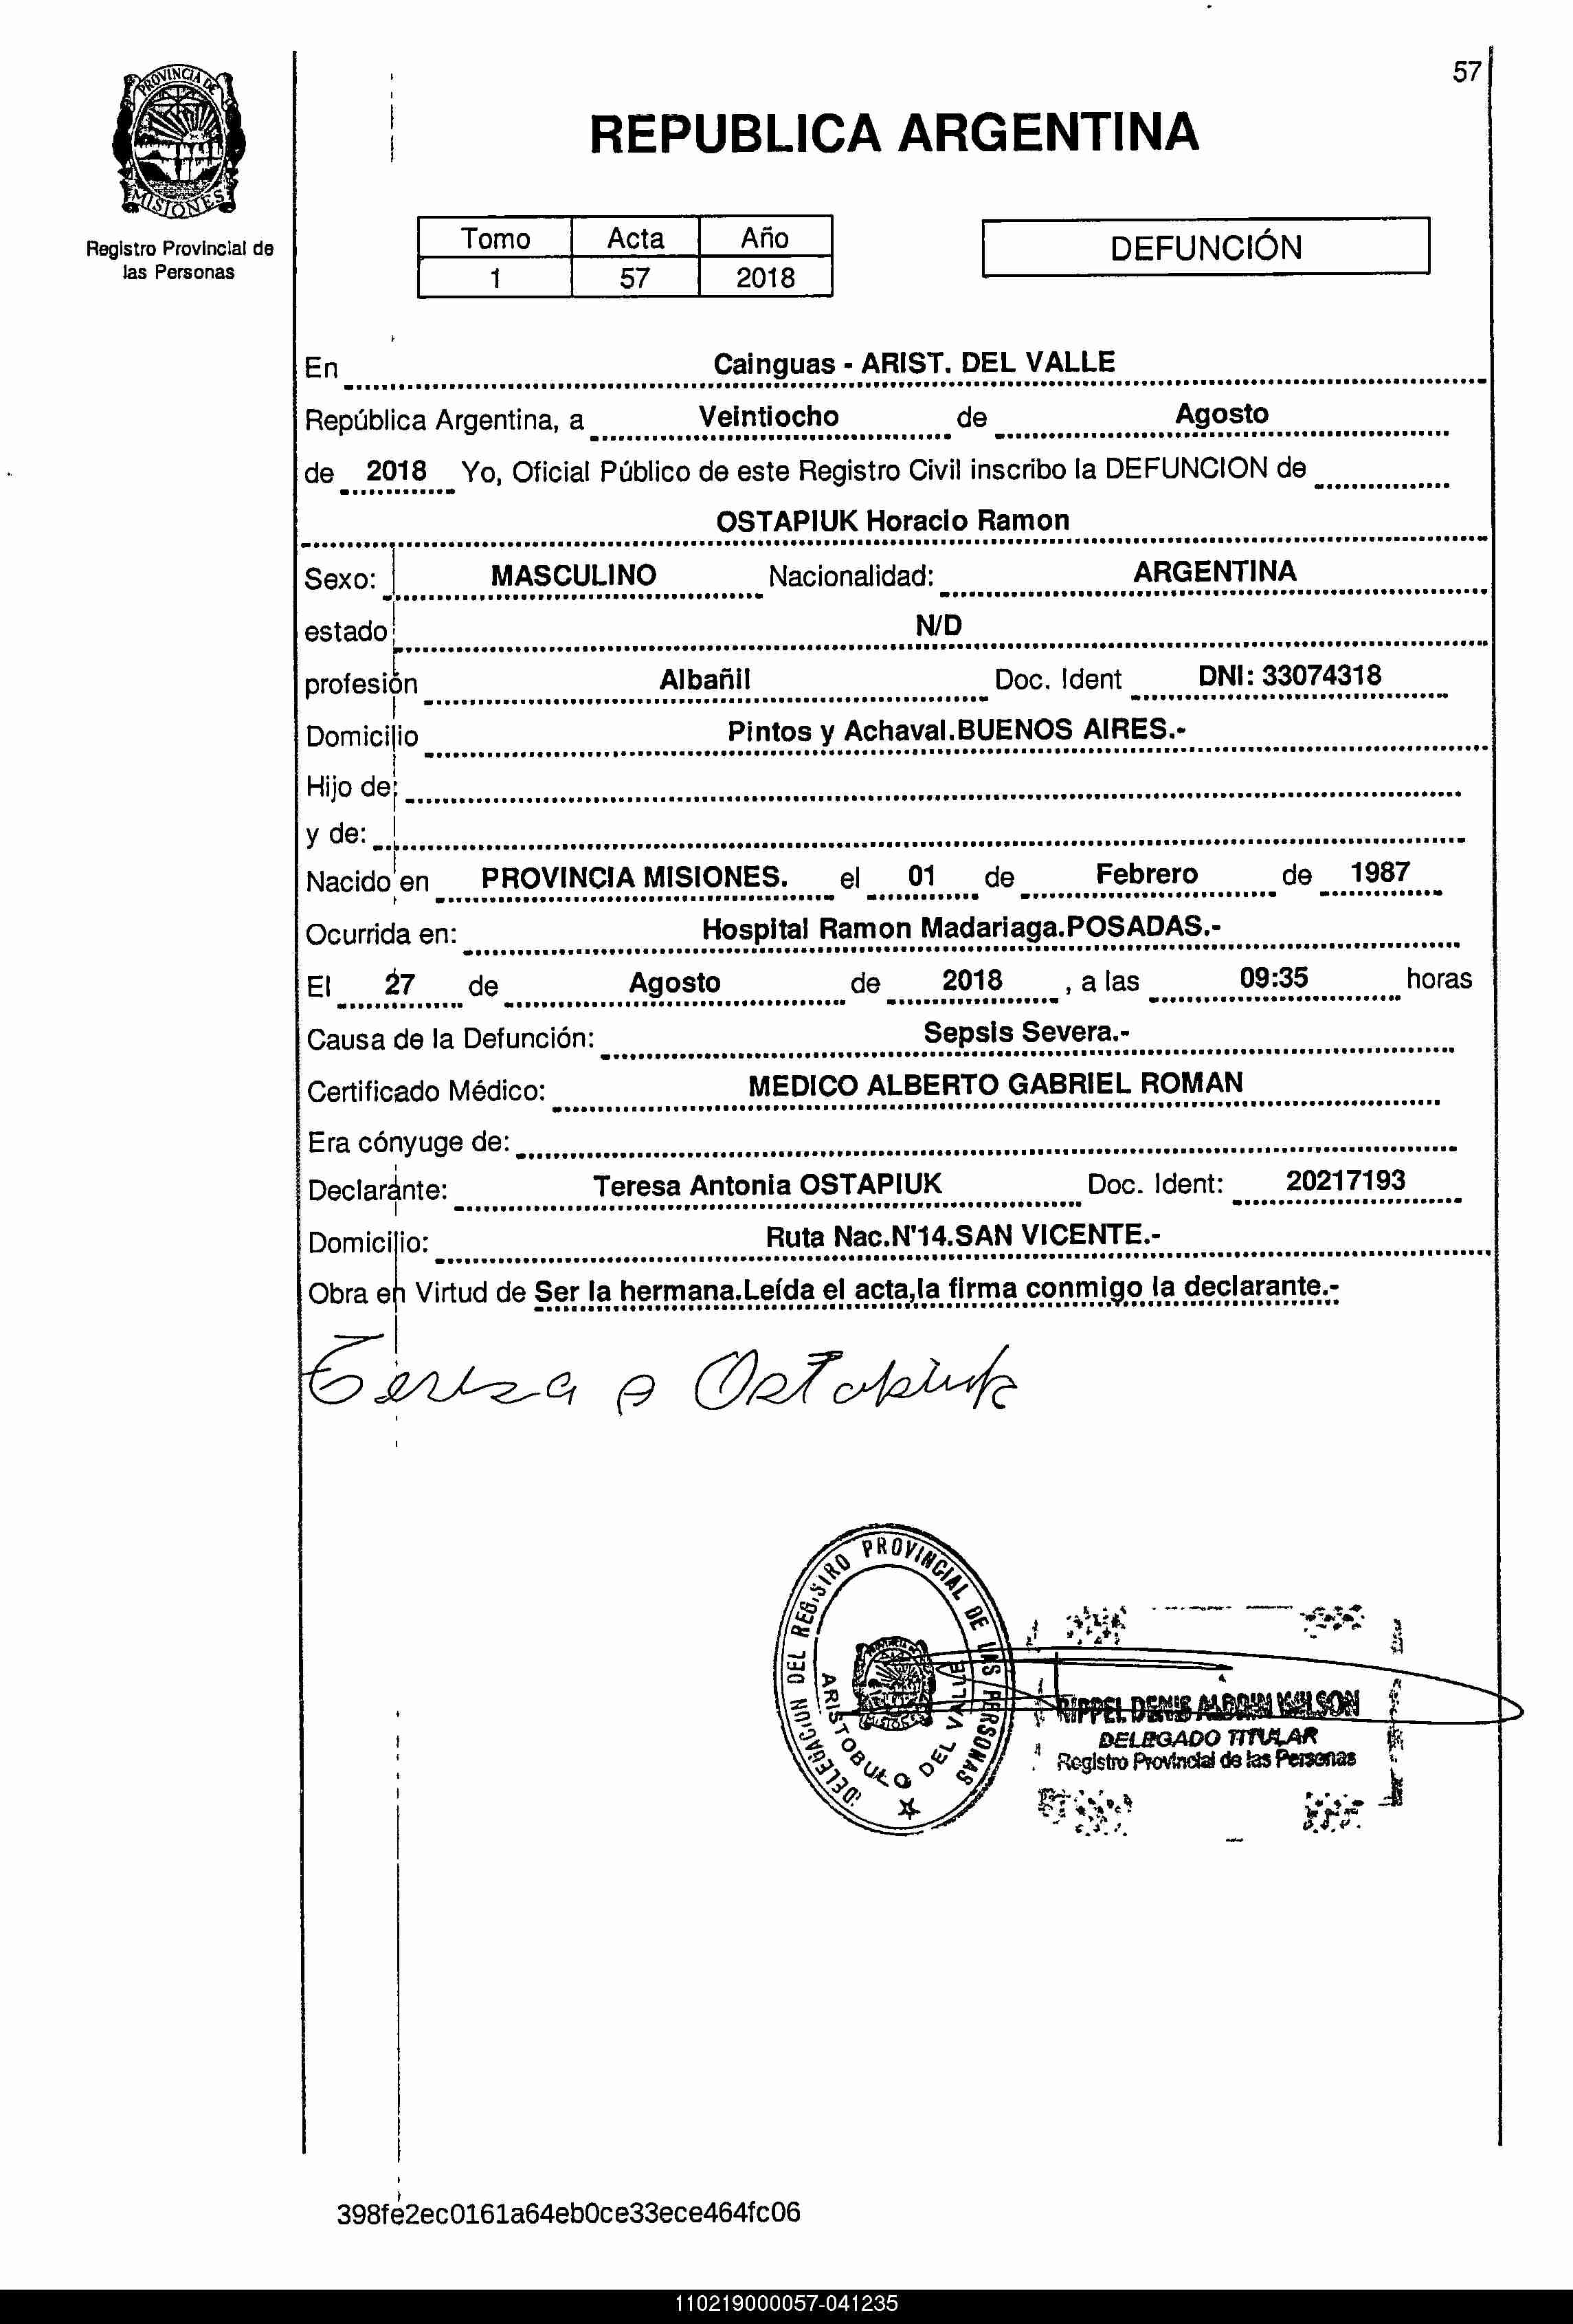 57
PROVINCIA DE
MISIONES
Registro Provincial de
las Personas
REPUBLICA ARGENTINA
Tomo Acta Año
1 57 2018
DEFUNCIÓN
En Cainguas - ARIST. DEL VALLE
República Argentina, a Veintiocho de Agosto
de 2018 Yo, Oficial Público de este Registro Civil inscribo la DEFUNCION de
OSTAPIUK Horacio Ramon
Sexo: MASCULINO Nacionalidad: ARGENTINA
estado N/D
profesión Albañil Doc. Ident DNI: 33074318
Domicilio Pintos y Achaval.BUENOS AIRES.-
Hijo de:
y de:
Nacido en PROVINCIA MISIONES. el 01 de Febrero de 1987
Ocurrida en: Hospital Ramon Madariaga.POSADAS.-
El 27 de Agosto de 2018 , a las 09:35 horas
Causa de la Defunción: Sepsis Severa.-
Certificado Médico: MEDICO ALBERTO GABRIEL ROMAN
Era cónyuge de:
Declarante: Teresa Antonia OSTAPIUK Doc. Ident: 20217193
Domicilio: Ruta Nac.N'14.SAN VICENTE.-
Obra en Virtud de Ser la hermana.Leída el acta,la firma conmigo la declarante.-
Teresa A Ostapiuk
DELEGACION DEL REGISTRO PROVINCIAL DE LAS PERSONAS
ARISTOBULO DEL VALLE
RIPPEL DENIS WILSON
DELEGADO TITULAR
Registro Provincial de las Personas
398fe2ec0161a64eb0ce33ece464fc06
110219000057-041235